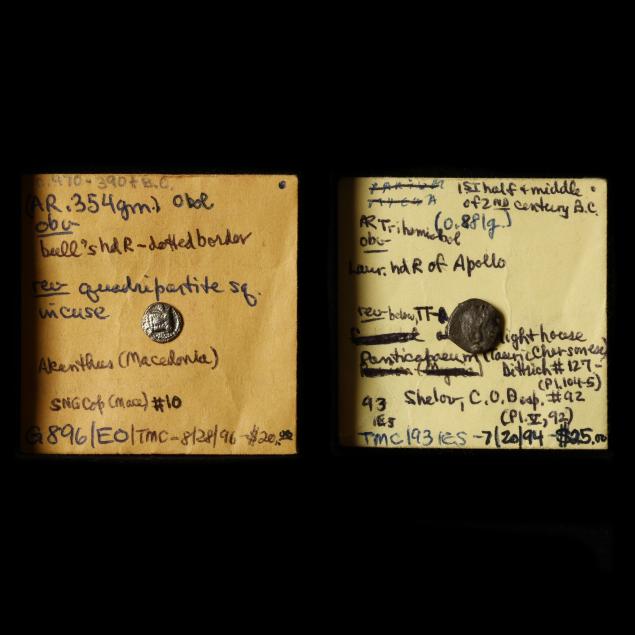 c. 470 - 390± B.C.
(AR .354gm.) Obol
obv-
bull's hd R - dotted border
rev quadripartite sq.
incuse
Akanthus (Macedonia)
SNG Cop (Mace) #10
G896/EO/TMC - 8/28/96 - $20.00
1st half & middle
of 2nd century B.C.
AR Trihemiobol (0.881g.)
obv-
Laur. hd R of Apollo
rev - below, TF
lighthouse
Panticapaeum (Tauric Chersonese)
Dittrich #127-
(Pl. 104-5)
93 Shelov, C.O. Bosp. #92
IES (Pl. V, 92)
TMC/93 IES - 7/20/94 - $25.00